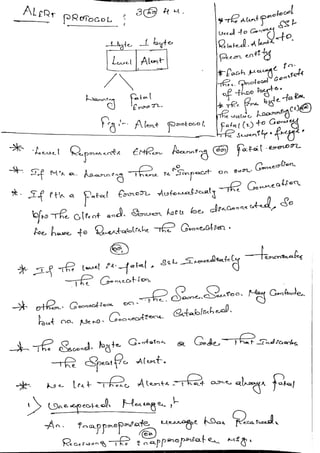 ALERT PROTOCOL : 3 (or) 4 M.
* The Alert protocol
used to Convey SSL
Related Alerts to
peer entity
* Each message in
This protocol consists
of two bytes.
* The first byte takes
the value warning(1) (or)
fatal(2) to Convey
The severity of msge.
1byte 1 byte
Level Alert
warning fatal
error
Fig:- Alert protocol
* Level Represents Either warning (or) fatal error
* If it's a warning There is no impact on our Connection
* If it's a fatal error Automatically The Connection
b/w The Client and Server will be disconnected, So
we have to Reestablish The Connection.
(or)
* If The level is fatal, SSL Immediately terminates
The Connection
* other Connections on The Same Session May Continue
but no New Connections established.
* The Second byte Contains a Code That Indicates
The Specific Alert.
* we list Those Alerts That are always fatal
1) Unexpected Message :-
An inappropriate message was Received.
(or)
Receiving The inappropriate msg.